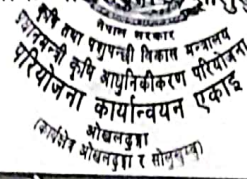 नेपाल सरकार
कृषि तथा पशुपन्छी विकास मन्त्रालय
प्रधानमन्त्री कृषि आधुनिकीकरण परियोजना
परियोजना कार्यान्वयन एकाई
ओखलढुङ्गा
(कार्यक्षेत्र ओखलढुङ्गा र सोलुखुम्बु)